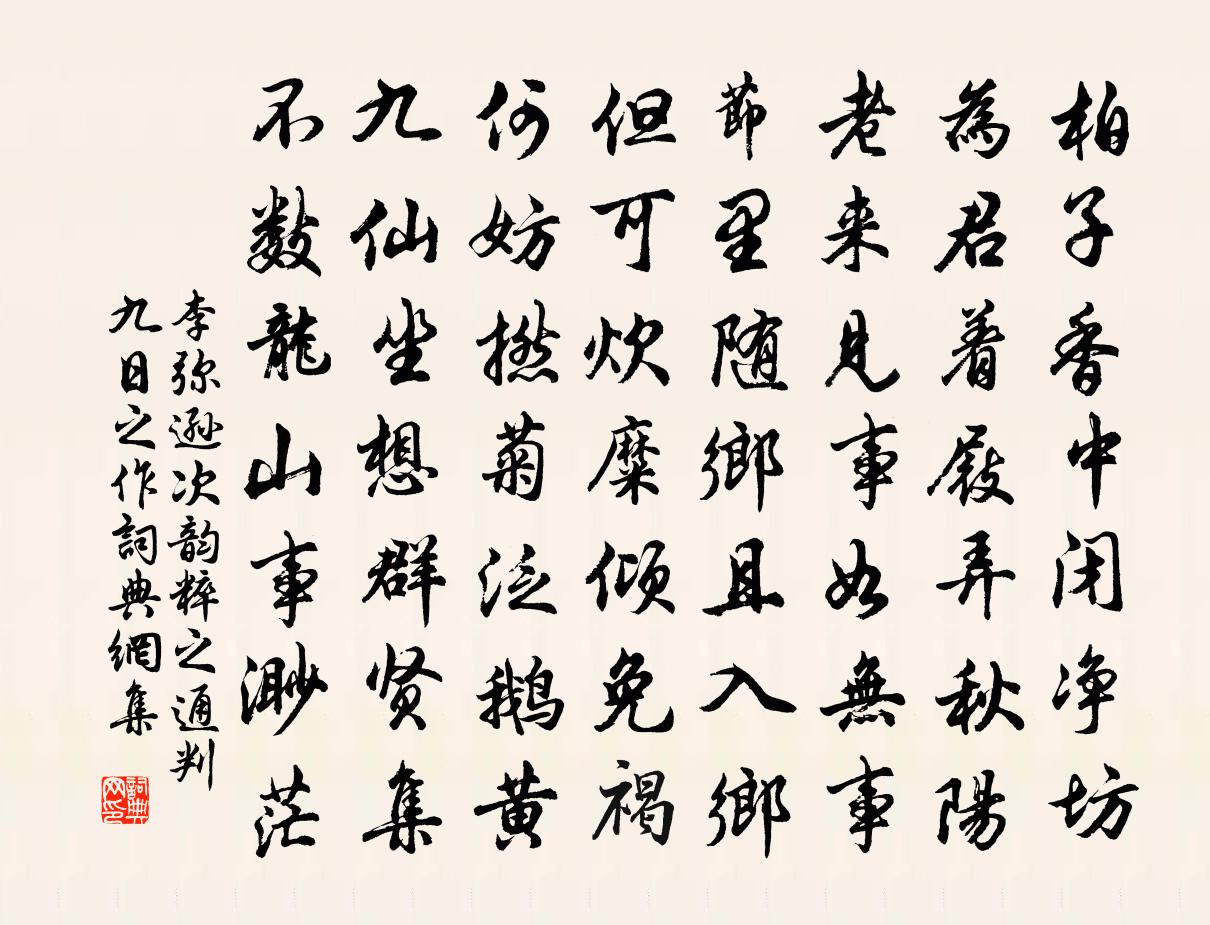 柏子香中闭净坊
為君着屐弄秋陽
老来見事如無事
節里随鄉且入鄉
但可炊糜倾兔褐
何妨撚菊泛鹅黄
九仙坐想群贤集
不数龍山事渺茫
李弥遜次韵粹之通判
九日之作詞典網集
詞典网印